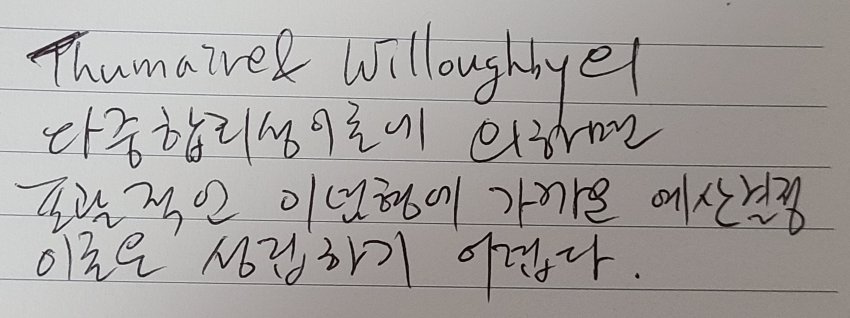 Thumaire& Willoughby의
다중합리성이론에 의하면
포괄적인 이념형에 가까운 예산결정
이론은 성립하기 어렵다.